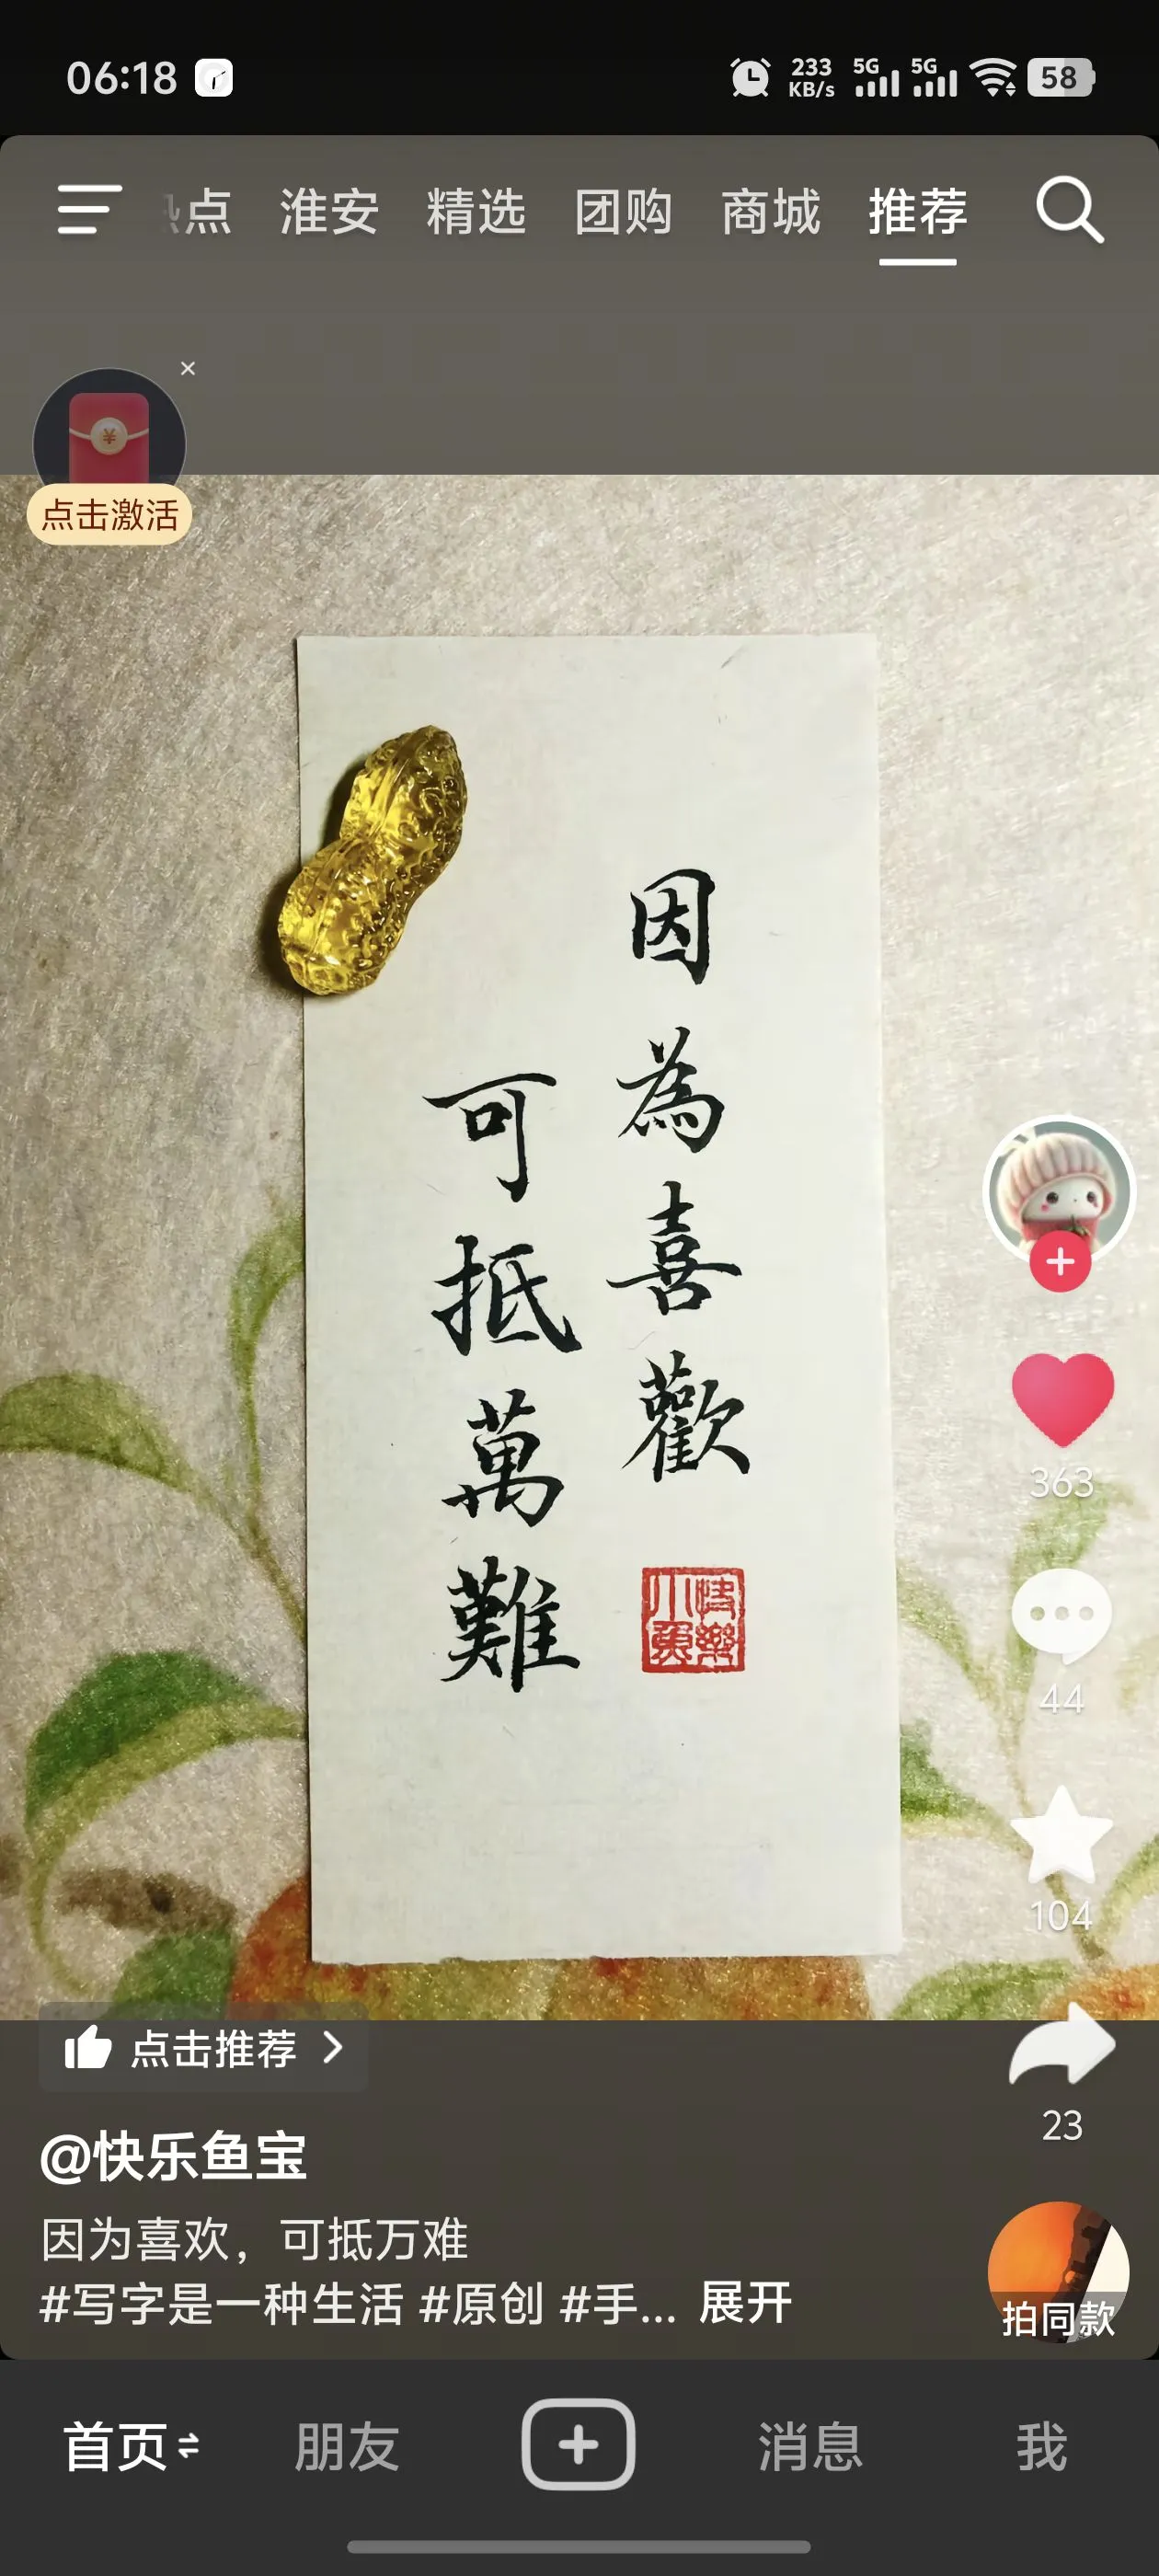 06:18
233 KB/s
5G
5G
58
点
淮安
精选
团购
商城
推荐
点击激活
因為喜歡
可抵萬難
快樂小魚
363
44
104
点击推荐
23
@快乐鱼宝
因为喜欢，可抵万难
#写字是一种生活 #原创 #手... 展开
拍同款
首页
朋友
消息
我